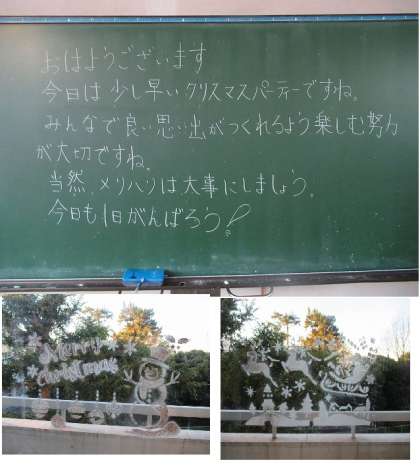 おはようございます
今日は少し早いクリスマスパーティーですね。
みんなで良い思い出がつくれるよう楽しむ努力
が大切ですね。
当然、メリハリは大事にしましょう。
今日も1日がんばろう!
Merry
Christmas